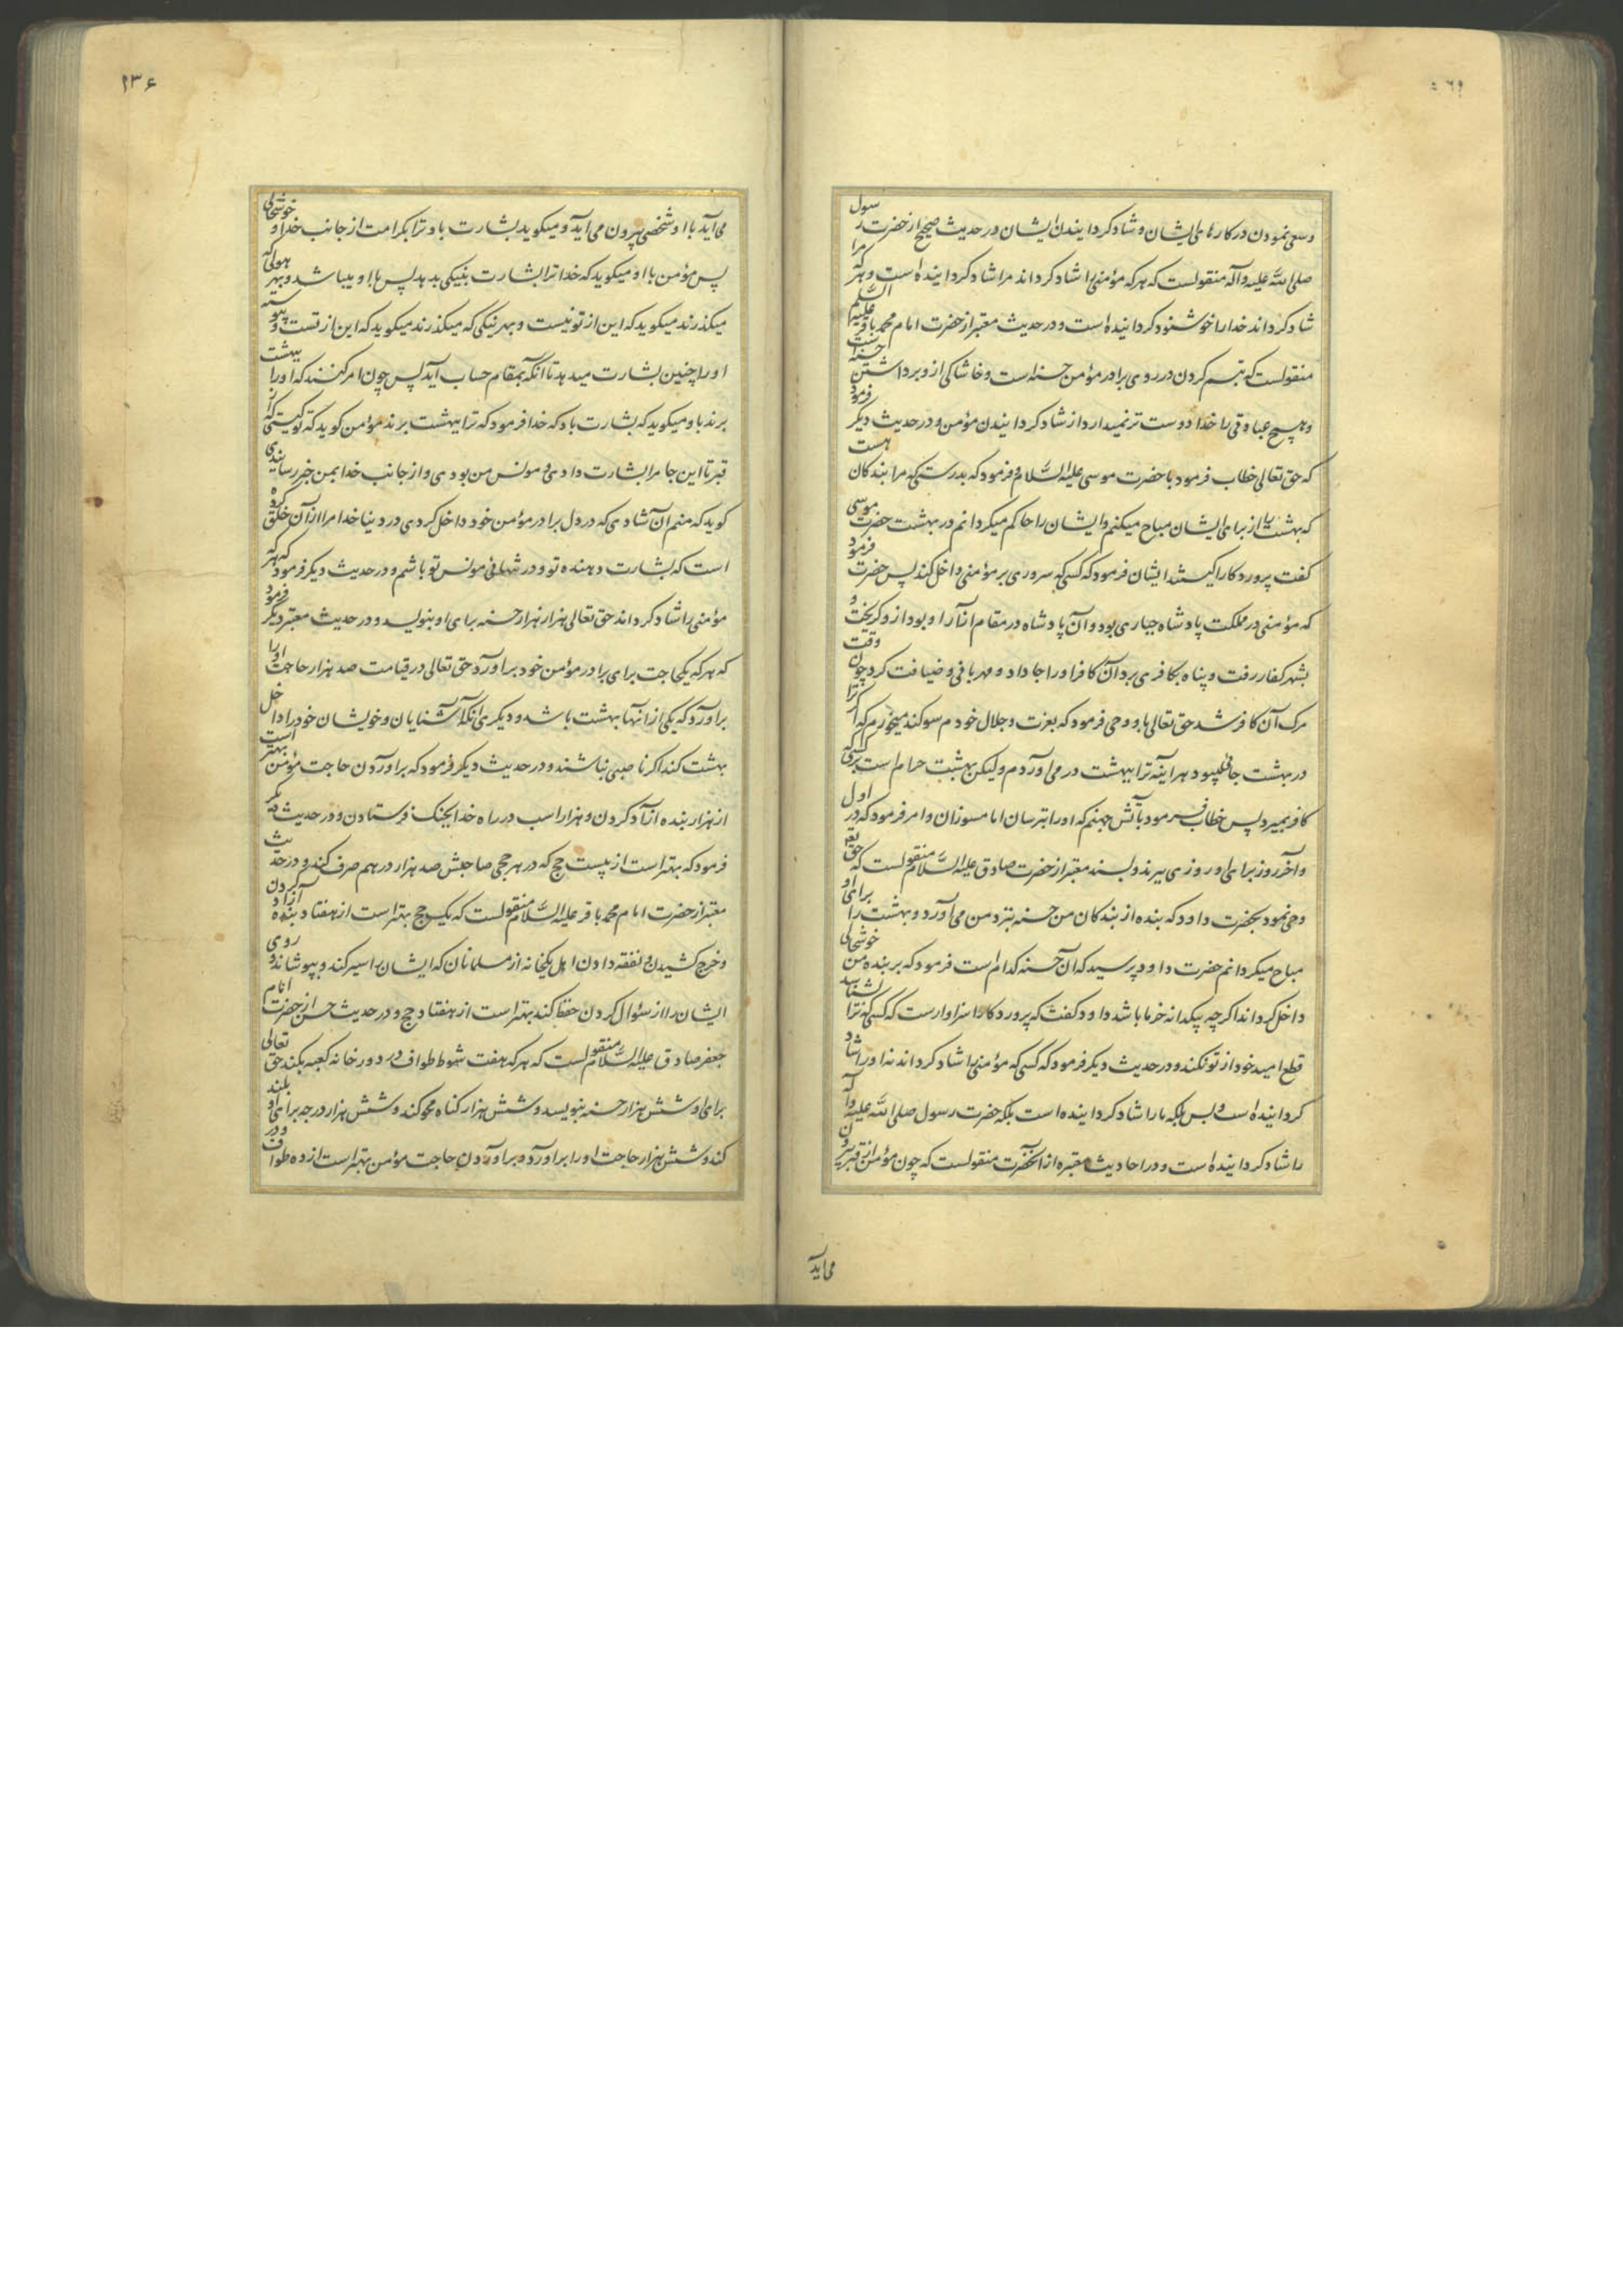 وسعی نمودن در کارهای ایشان و شاد کردانیدن ایشان در حدیث صحیح از حضرت رسول
صلی الله علیه وآله منقولست که هر که مؤمنی را شاد کرداند مرا شاد کردانیده است و هر که مرا
شاد کرداند خدا را خوشنود کردانیده است و در حدیث معتبر از حضرت امام محمد باقر علیه السلم
منقولست که تبسم کردن در روی برادر مؤمن حسنه است و خاشاکی از و برداشتن حسنه است
و هیچ عبادتی را خدا دوست تر نمیدارد از شاد کردانیدن مؤمن و در حدیث دیکر فرمود
که حق تعالی خطاب فرمود با حضرت موسی علیه السلام و فرمود که بدرستی که مرا بندکان هست
که بهشت را از برای ایشان مباح میکنم و ایشان را حاکم میکردانم در بهشت حضرت موسی
کفت پروردکارا کیستند ایشان فرمود که کسی که سروری بر مؤمنی داخل کند پس حضرت فرمود
که مؤمنی در مملکت پادشاه جباری بود و آن پادشاه در مقام آزار او بود از و کریخت و
بشهر کفار رفت و پناه بکافری برد آن کافر او را جا داد و مهربانی و ضیافت کرد چون وقت
مرک آن کافر شد حق تعالی باو وحی فرمود که بعزت و جلال خودم سوکند میخورم که اکر ترا
در بهشت جائی میبود هر آینه ترا ببهشت در می آوردم ولیکن بهشت حرام است بر کسی که
کافر بمیرد پس خطاب فرمود بآتش جهنم که او را بترسان اما مسوزان و امر فرمود که در اول
و آخر روز برای او روزی ببرند و بسند معتبر از حضرت صادق علیه السلام منقولست که حق تع
وحی نمود بحضرت داود که بنده از بندکان من حسنه بنزد من می آورد و بهشت را برای او
مباح میکردانم حضرت داود پرسید که آن حسنه کدام است فرمود که بر بنده من خوشحالی
داخل کرداند اکرچه بیکدانه خرما باشد داود کفت که پروردکارا سزاوارست که کسی که ترا بشناسد
قطع امید خود از تو نکند و در حدیث دیکر فرمود که کسی که مؤمنی را شاد کرداند نه او را شاد
کردانیده است و بس بلکه ما را شاد کردانیده است بلکه حضرت رسول صلی الله علیه وآله
را شاد کردانیده است و در احادیث معتبره از آنحضرت منقولست که چون مؤمن از قبر بیرون
می آید
می آید با او شخصی بیرون می آید و میکوید بشارت باد ترا بکرامت از جانب خدا و خوشحالی
پس مؤمن با او میکوید که خدا ترا بشارت بنیکی بدهد پس با او میباشد و بهر هولی که
میکذرند میکوید که این از تو نیست و بهر نیکی که میکذرند میکوید که این از تست و پیوسته
او را چنین بشارت میدهد تا آنکه بمقام حساب آید پس چون امر کنند که او را ببهشت
برند باو میکوید که بشارت باد که خدا فرمود که ترا ببهشت برند مؤمن کوید که تو کیستی که از
قبر تا این جا مرا بشارت دادی و مونس من بودی و از جانب خدا بمن خبر رسانیدی
کوید که منم آن شادی که در دل برادر مؤمن خود داخل کردی در دنیا خدا مرا از آن خلق کرده
است که بشارت دهنده تو و در تنهائی مونس تو باشم و در حدیث دیکر فرمود که هر که
مؤمنی را شاد کرداند حق تعالی هزار هزار حسنه برای او بنویسد و در حدیث معتبر دیکر فرمود
که هر که یکحاجت برای برادر مؤمن خود برآورد حق تعالی در قیامت صد هزار حاجت او را
برآورد که یکی از آنها بهشت باشد و دیکری آنکه آشنایان و خویشان خود را داخل
بهشت کند اکر ناصبی نباشند و در حدیث دیکر فرمود که برآوردن حاجت مؤمن بهتر است
از هزار بنده آزاد کردن و هزار اسب در راه خدا بجنک فرستادن و در حدیث دیکر
فرمود که بهتر است از بیست حج که در هر حجی صاحبش صد هزار درهم صرف کند و در حدیث
معتبر از حضرت امام محمد باقر علیه السلام منقولست که یک حج بهتر است از هفتاد بنده آزاد کردن
و خرج کشیدن و نفقه دادن اهل یکخانه از مسلمانان که ایشان را سیر کند و بپوشاند و روی
ایشان را از سؤال کردن حفظ کند بهتر است از هفتاد حج و در حدیث حسن از حضرت امام
جعفر صادق علیه السلام منقولست که هر که هفت شوط طواف در دور خانه کعبه بکند حق تعالی
برای او شش هزار حسنه بنویسد و شش هزار کناه محو کند و شش هزار درجه برای او بلند
کند و شش هزار حاجت او را برآورد و برآوردن حاجت مؤمن بهتر است از ده طواف و در